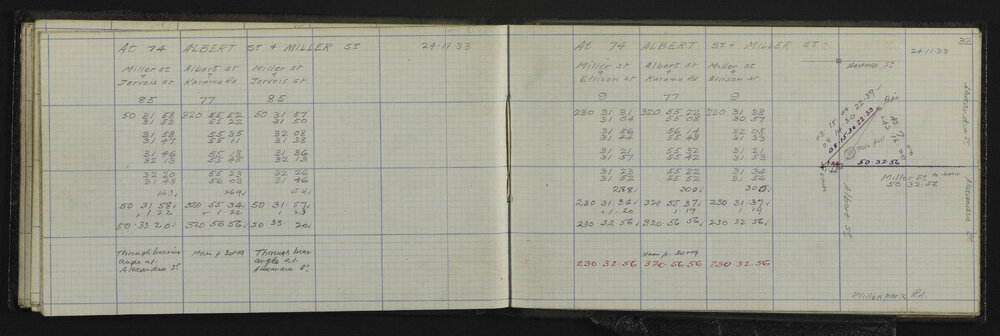 At 74 ALBERT ST & MILLER ST 24.11.33
Miller St Albert St Miller St
& & &
Jervois St Karamu Rd Jervois St
85 77 85
50 31 58 320 55 52 50 31 57
31 53 55 22 31 50
31 58 55 35 32 08
31 47 55 11 31 28
31 46 55 13 31 36
32 13 55 45 32 13
32 20 55 23 32 26
31 48 56 03 31 46
50 31 58 320 55 34 50 31 57
1 22 1 22 1 23
50 33 20 320 56 56 50 33 20
Through bearing Mean p. 30 & 49 Through bear
angle at angle at
Alexandra St Alexandra St
32
At 74 ALBERT ST & MILLER ST. 24.11.33
Miller St Albert St Miller St
& & &
Ellison St Karamu Rd Ellison St
9 77 9
230 31 31 320 55 22 230 31 38
31 04 55 08 30 57
31 56 56 14 32 05
31 44 55 43 31 33
31 21 55 32 31 21
31 57 55 42 31 53
31 23 55 22 31 34
31 52 55 52 31 56
288 300 300
230 31 36 320 55 37 230 31 37
1 20 1 19 1 19
230 32 56 320 56 56 230 32 56
Mean p. 30 & 49
230 32 56 320 56 56 230 32 56
Hastings St
Alexandra St
Tele pole
50.32.56
Miller St to Jervois
50.32.56
Albert St
Alexandra St
Willowpark Rd